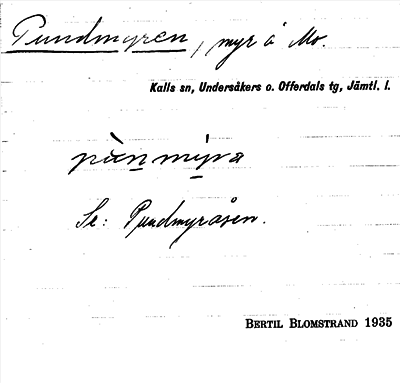 Pundmyren, myr å Mo.
Kalls sn, Undersåkers o. Offerdals tg, Jämtl. l.
pùn̲my̲ra
Se: Pundmyråsen.
BERTIL BLOMSTRAND 1935